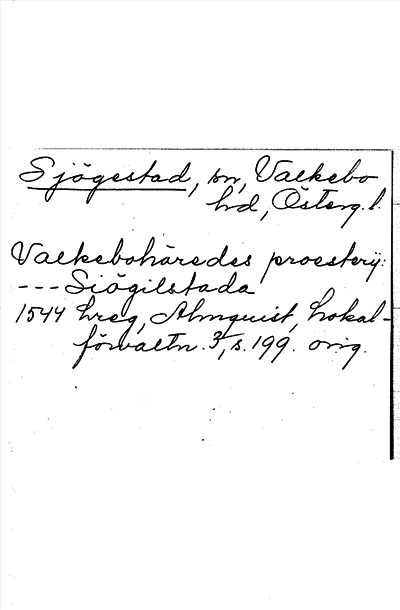 Sjögestad, sn, Valkebo
hd, Österg.l.
Valkebohäredes proestery:
--- Siögilstada
1544 hreg, Almquist, Lokal-
förvaltn. 3, s. 199. orig.